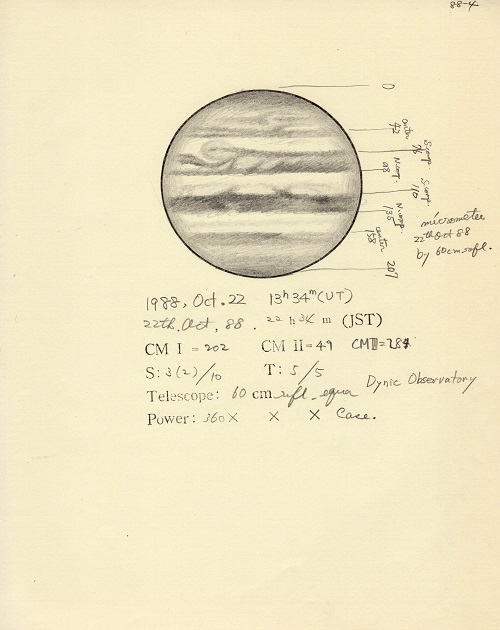 88-4
0
center
42
S. comp.
76
N. comp.
98
S. comp.
110
N. comp.
135
center
158
207
micrometer
22th Oct 88
by 60cm refl.
1988, Oct. 22 13h 34m (UT)
22th. Oct, 88. 22 h 34 m (JST)
CM I = 202 CM II = 49 CM III = 284
S: 3(2)/10 T: 5/5
Telescope: 60 cm refl. equa Dynic Observatory
Power: 360 X X X Case.